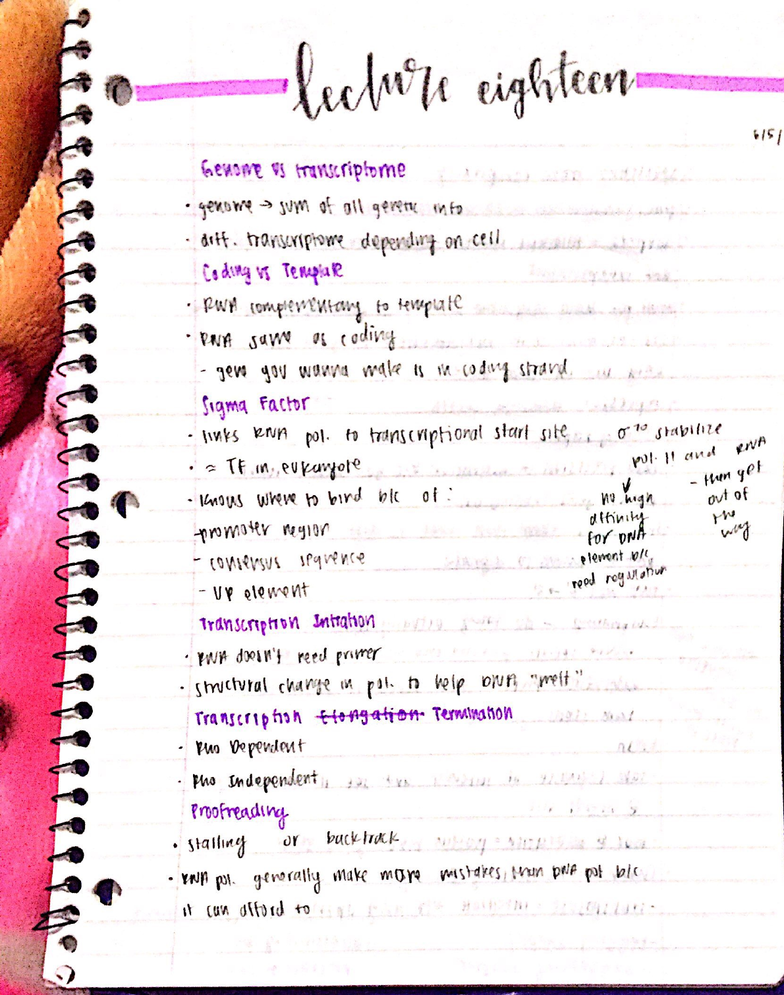 lecture eighteen
6/5/
Genome vs transcriptome
· genome → sum of all genetic info
· diff. transcriptome depending on cell
Coding vs Template
· RNA complementary to template
· RNA same as coding
- gene you wanna make is in coding strand
Sigma Factor
· links RNA pol. to transcriptional start site
· ≈ TF in eukaryote
· knows where to bind b/c of:
- promoter region
- consensus sequence
- UP element
σ70 stabilize
pol. II and RNA
- then get
out of
the
way
↓
no high
affinity
for DNA
element b/c
need regulation
Transcription Initiation
· RNA doesn't need primer
· structural change in pol. to help DNA "melt"
Transcription Elongation Termination
· Rho Dependent
· Rho Independent
Proofreading
· stalling or backtrack
· RNA pol. generally make more mistakes than DNA pol b/c
it can afford to